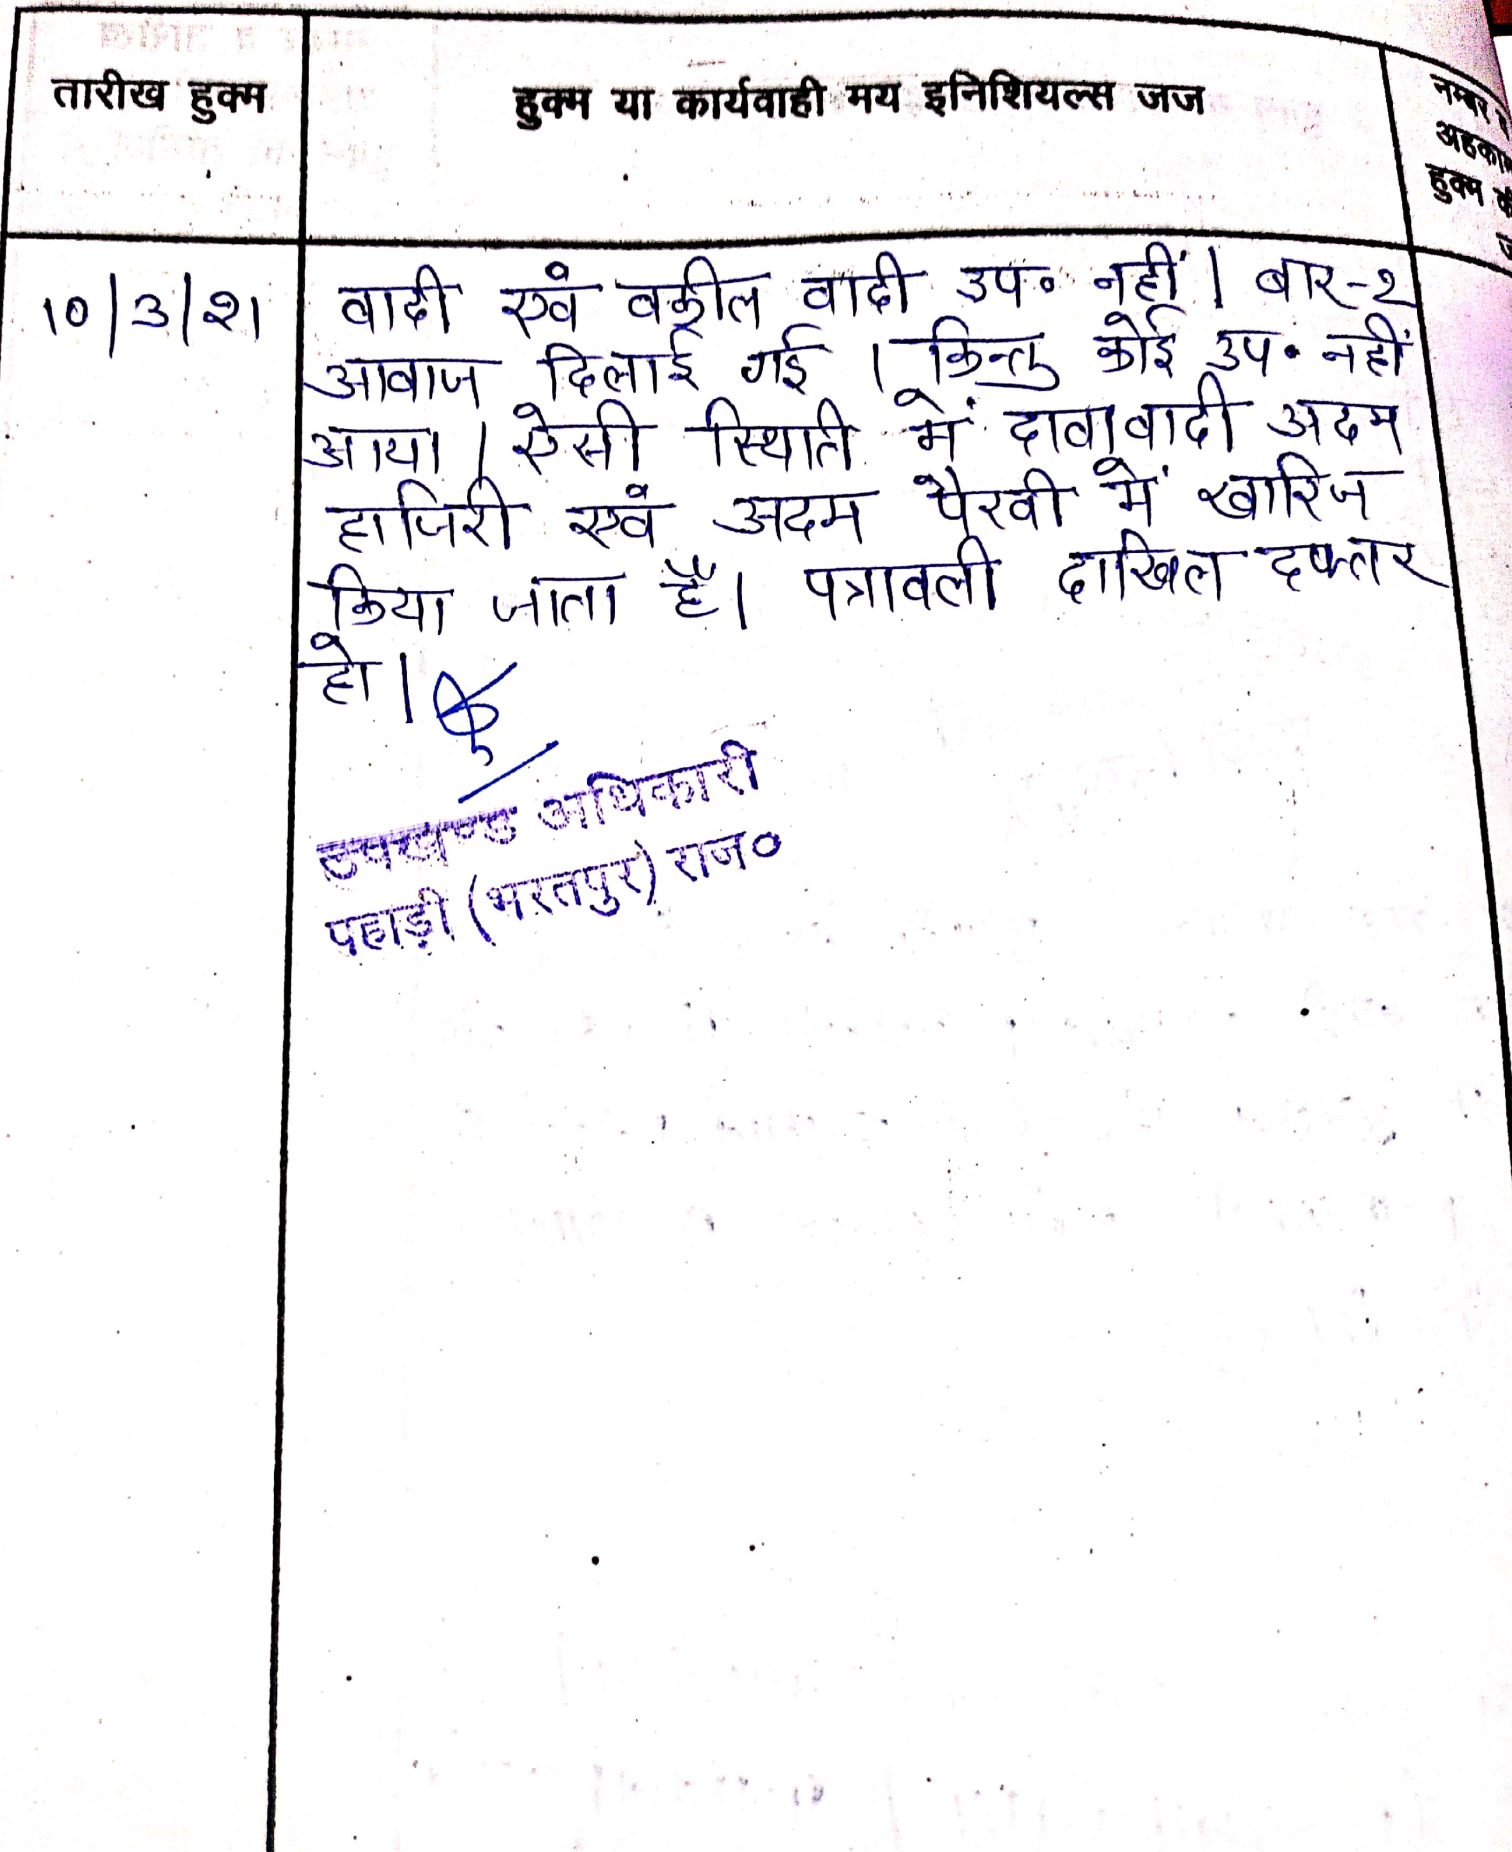 तारीख हुक्म
हुक्म या कार्यवाही मय इनिशियल्स जज
नम्बर
हुक्म
10/3/21
वादी एवं वकील वादी उप० नहीं। बार-२
आवाज दिलाई गई। किन्तु कोई उप० नहीं
आया। ऐसी स्थिति में दावा वादी अदम
हाजिरी एवं अदम पैरवी में खारिज
किया जाता है। पत्रावली दाखिल दफ्तर
हो।
उपखण्ड अधिकारी
पहाड़ी (भरतपुर) राज०